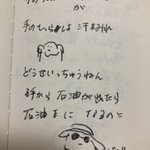 が
手のひらは 汗まみれ
どうせいっちゅうねん
手から 石油がでたら
石油王に なるのに